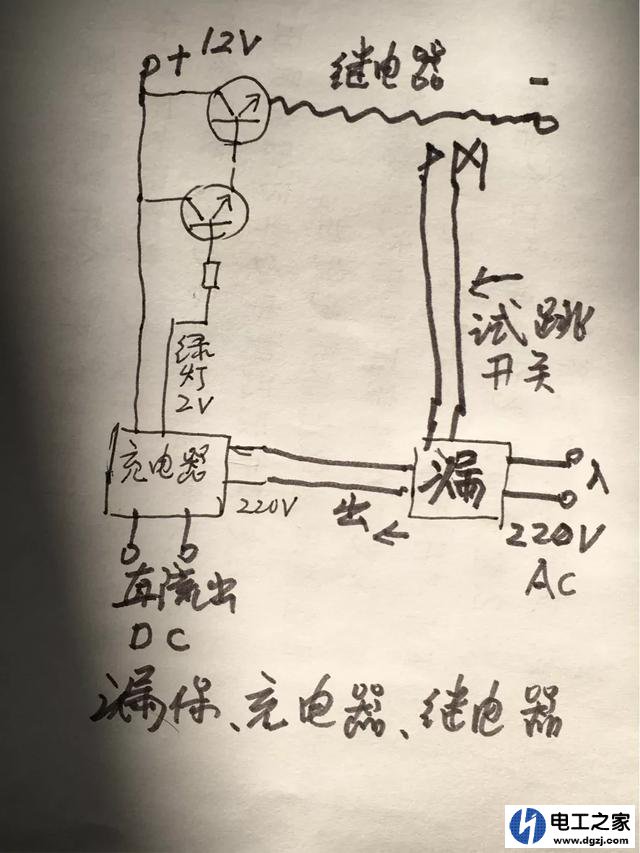 + 12V
继电器
-
试跳
开关
绿
灯
2V
充电器
漏
220V
出
入
220V
AC
直流出
DC
漏保、充电器、继电器
电工之家
www.dgzj.com